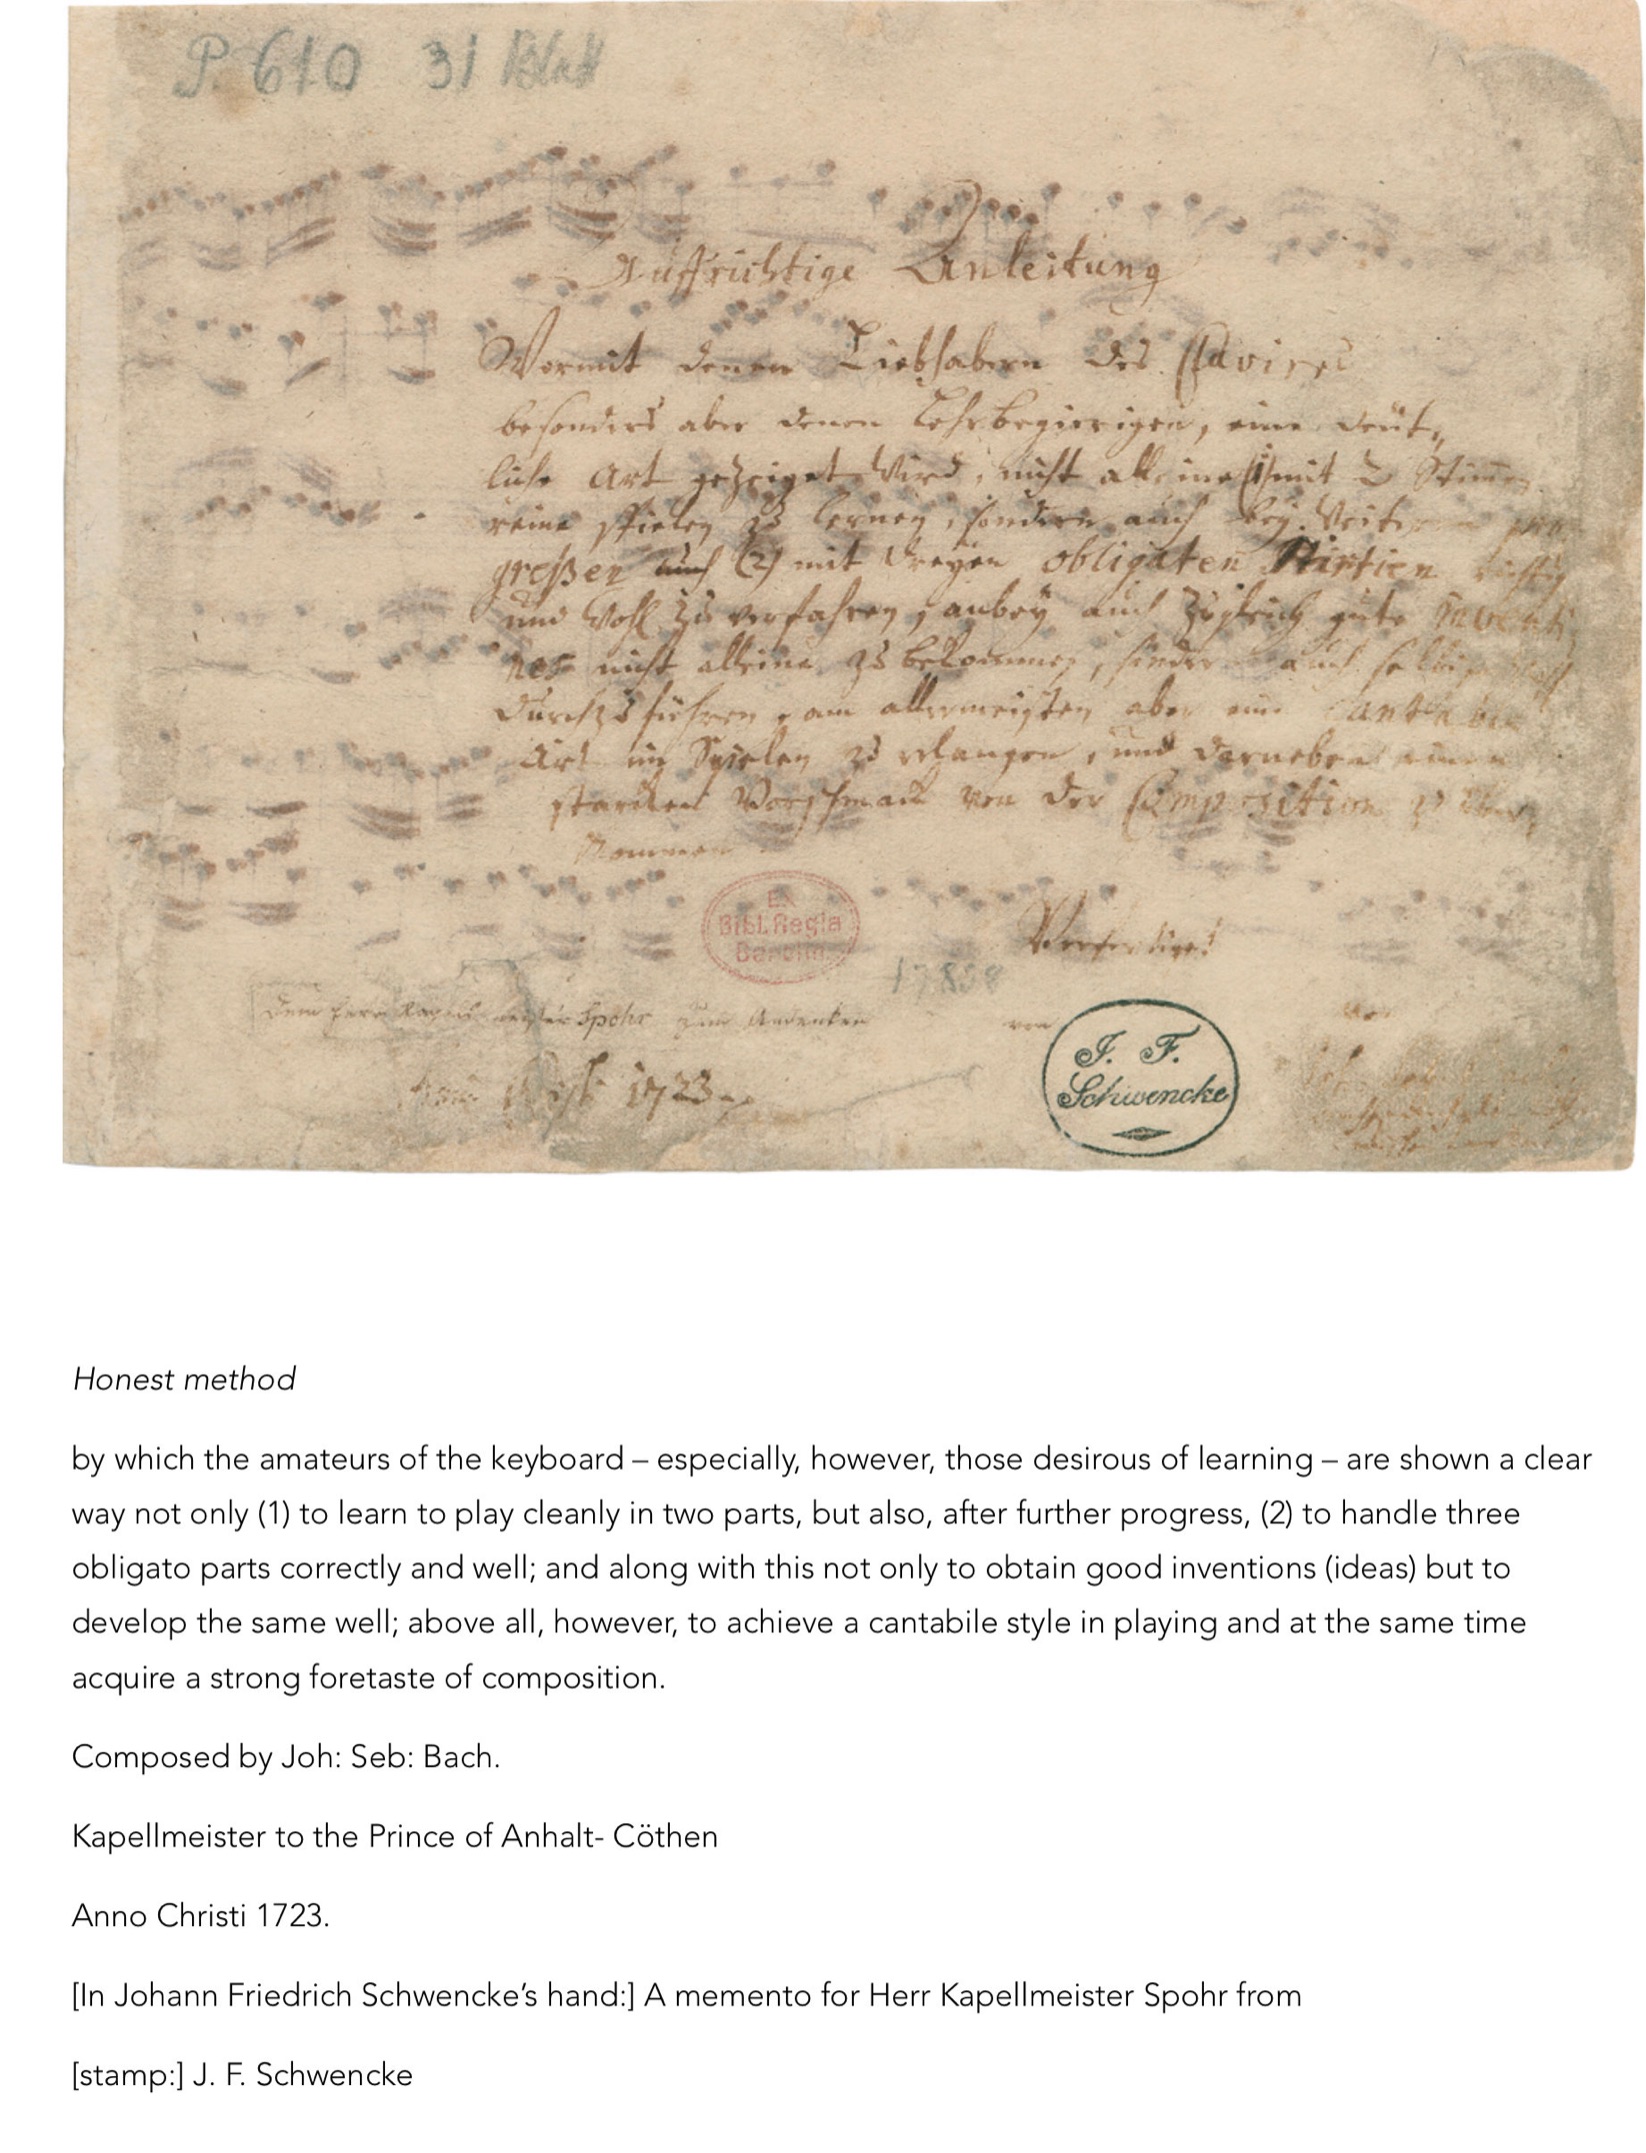 P. 610 31 Blatt
Auffrichtige Anleitung
Wormit denen Liebhabern des Clavires
besonders aber denen Lehrbegierigen, eine deüt-
liche Art gezeiget wird, nicht alleine (1) mit 2 Stimen
reine spielen zu lernen, sondern auch bey weiteren pro-
greßen auch (2) mit dreyen obligaten Partien richtig
und wohl zu verfahren, anbey auch zugleich gute inventio-
nes nicht alleine zu bekommen, sondern auch selbige wohl
durchzuführen, am allermeisten aber eine cantable
Art im Spielen zu erlangen, und darneben einen
starcken Vorschmack von der Composition zu über-
kommen.
EX
Bibl. Regia
Berolin.
Verfertiget
17838
Dem Herrn Kapellmeister Spohr zum Andenken von
J. F.
Schwencke
Anno Christi 1723.
Honest method
by which the amateurs of the keyboard – especially, however, those desirous of learning – are shown a clear
way not only (1) to learn to play cleanly in two parts, but also, after further progress, (2) to handle three
obligato parts correctly and well; and along with this not only to obtain good inventions (ideas) but to
develop the same well; above all, however, to achieve a cantabile style in playing and at the same time
acquire a strong foretaste of composition.
Composed by Joh: Seb: Bach.
Kapellmeister to the Prince of Anhalt- Cöthen
Anno Christi 1723.
[In Johann Friedrich Schwencke’s hand:] A memento for Herr Kapellmeister Spohr from
[stamp:] J. F. Schwencke